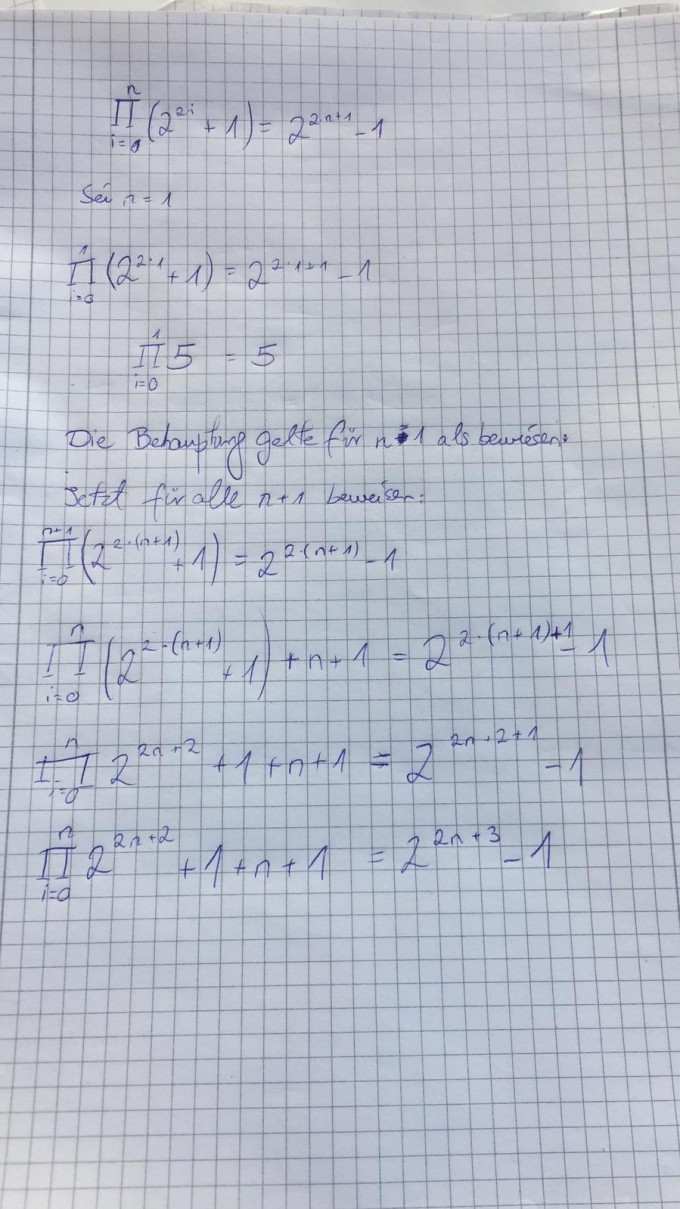 ∏_{i=0}^{n} (2^{2i} + 1) = 2^{2n+1} - 1
Sei n = 1
∏_{i=0}^{1} (2^{2·1} + 1) = 2^{2·1+1} - 1
∏_{i=0}^{1} 5 = 5
Die Behauptung gelte für n=1 als bewiesen.
Jetzt für alle n+1 beweisen:
∏_{i=0}^{n+1} (2^{2·(n+1)} + 1) = 2^{2·(n+1)} - 1
∏_{i=0}^{n} (2^{2·(n+1)} + 1) + n + 1 = 2^{2·(n+1)+1} - 1
∏_{i=0}^{n} 2^{2n+2} + 1 + n + 1 = 2^{2n+2+1} - 1
∏_{i=0}^{n} 2^{2n+2} + 1 + n + 1 = 2^{2n+3} - 1